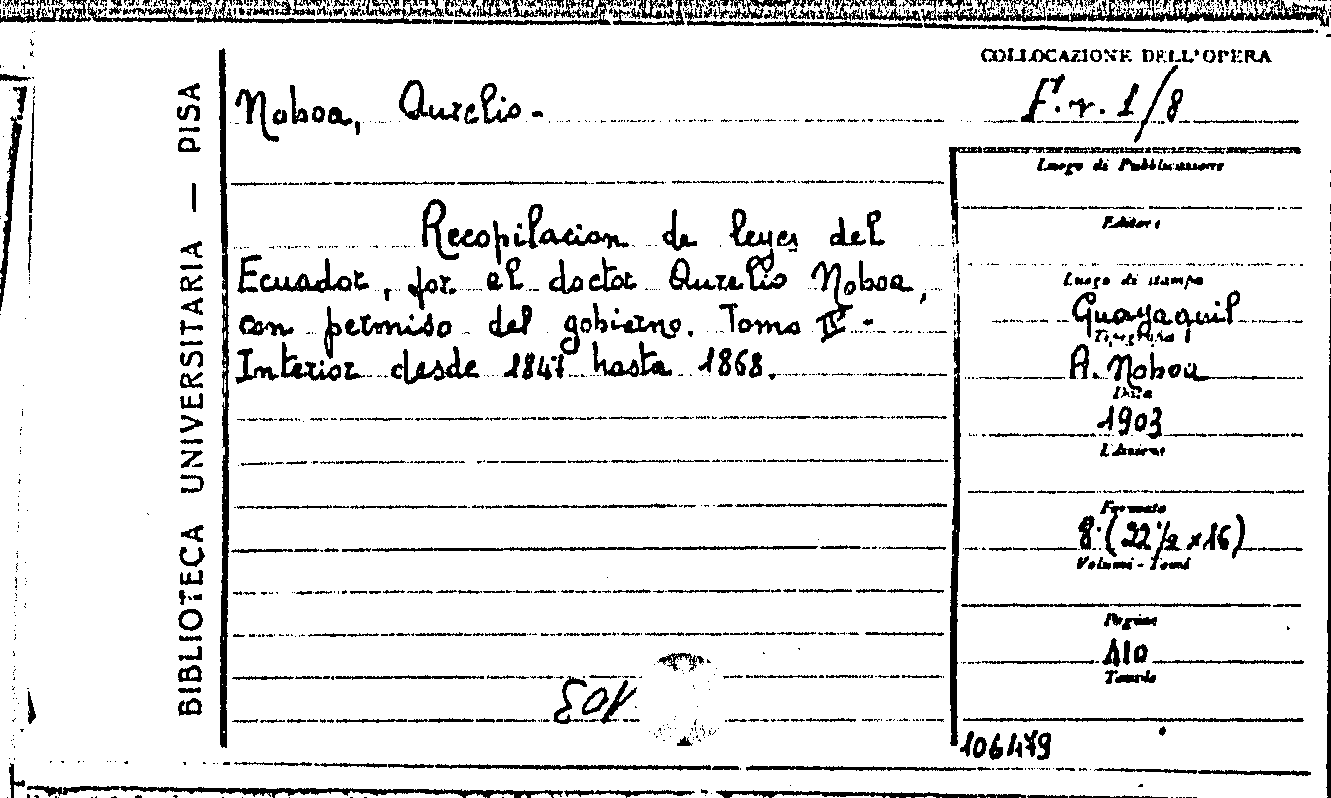 COLLOCAZIONE DELL'OPERA
F. r. 1/8
BIBLIOTECA UNIVERSITARIA — PISA
Noboa, Aurelio.
Recopilacion de leyes del
Ecuador, por el doctor Aurelio Noboa,
con permiso del gobierno. Tomo IV -
Interior desde 1847 hasta 1868.
Luogo di Pubblicazione
Editore
Luogo di stampa
Guayaquil
Tipografia
A. Noboa
Data
1903
Edizione
Formato
8° (22 1/2 x 16)
Volumi - Tomi
Pagine
410
Tavole
106479